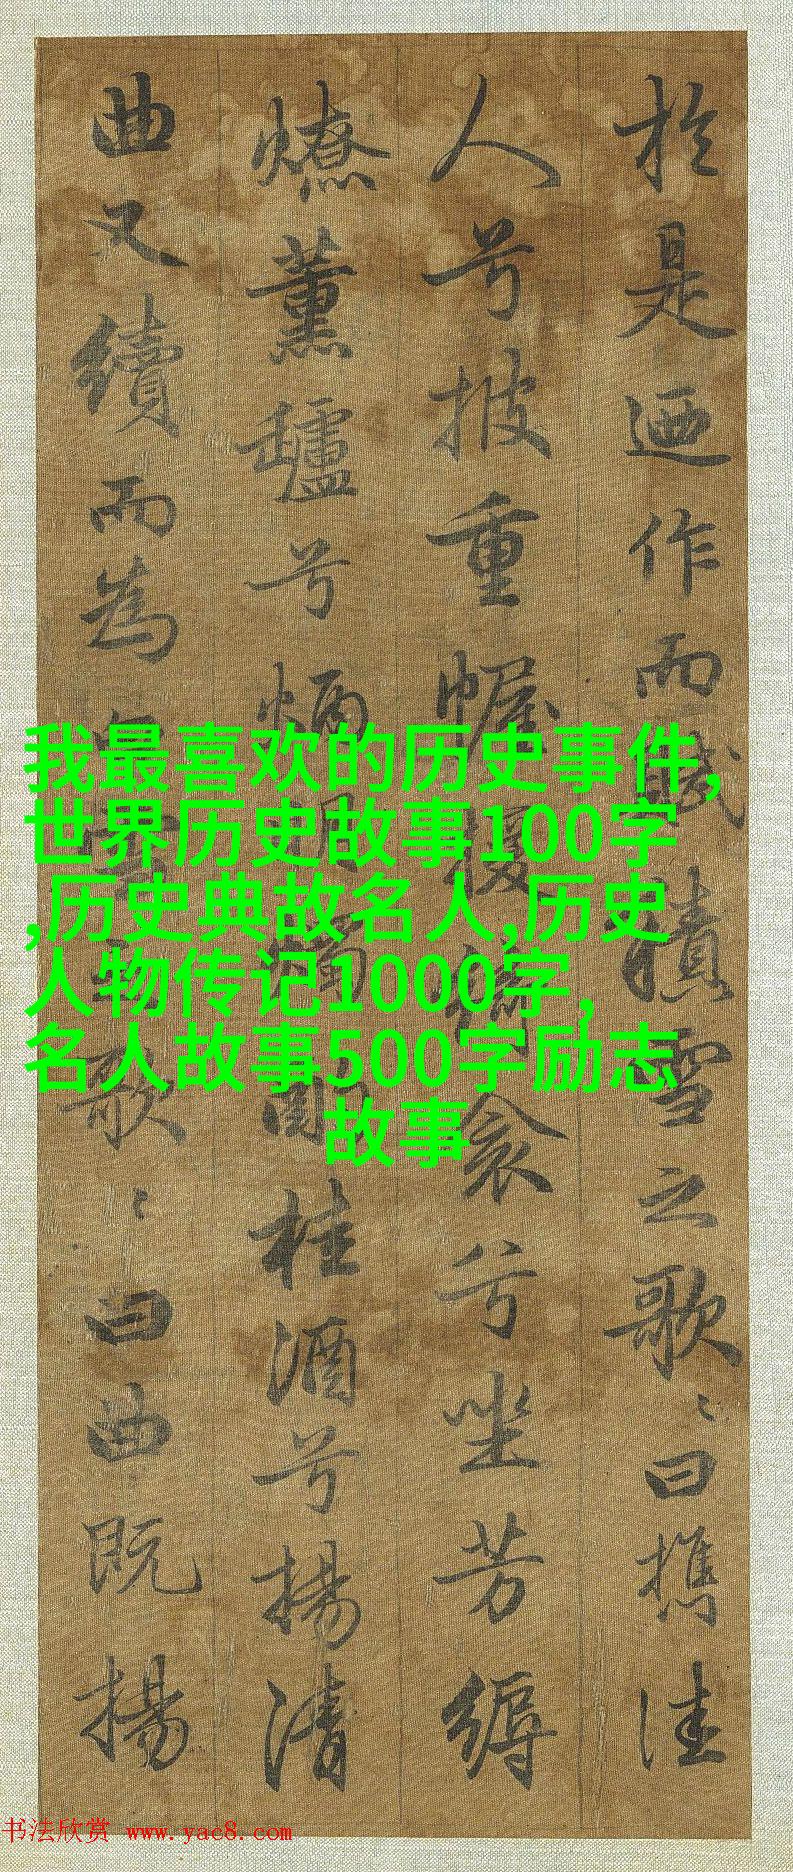 於是迺作而賦積雪之歌〻曰攜佳
人兮披重幄援綺衾兮坐芳縟
燎薰鑪兮炳明燭酌桂酒兮揚清
曲又續而為白雪之歌〻曰曲既揚
我最喜欢的历史事件,
世界历史故事100字
,历史典故名人,历史
人物传记1000字,
名人故事500字励志
故事
书法欣赏 www.yac8.com